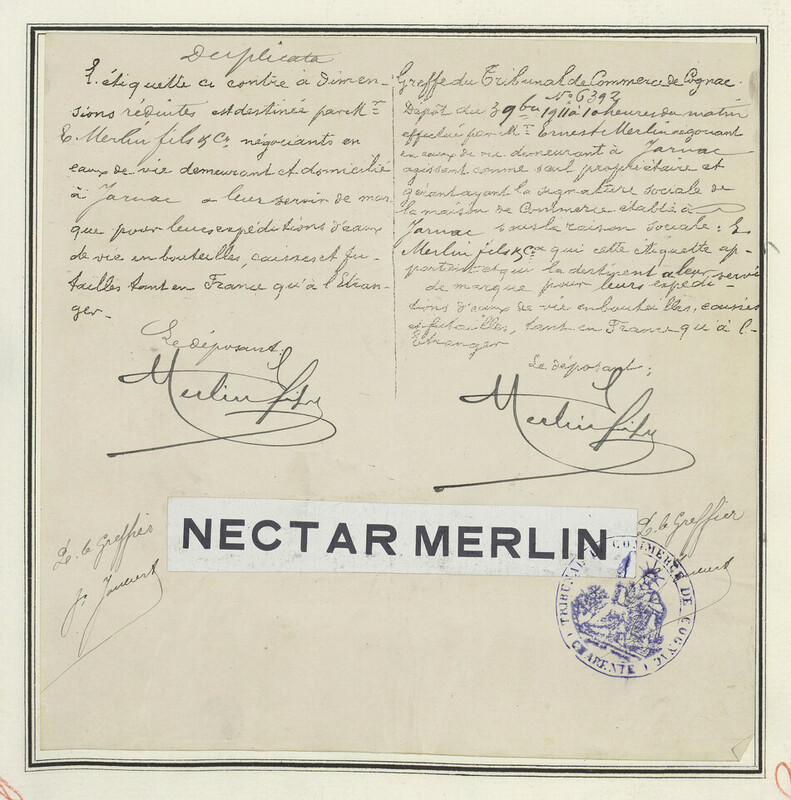 Duplicata
L'étiquette ci contre à dimen-
sions réduites est destinée par Mr
E. Merlin fils & Ce négociants en
eaux de vie demeurant et domicilié
à Jarnac a leur servir de mar
que pour leurs expéditions d'eaux
de vie en bouteilles, caisses et fu-
tailles tant en France qu'à l'Etran-
ger.
Le déposant:
Merlin fils
Greffe du Tribunal de Commerce de Cognac.
No 6392
Dépôt du 3 9bre 1911 à 10 heures du matin
effectué par Mr Ernest Merlin négociant
en eaux de vie demeurant à Jarnac
agissant comme seul propriétaire et
gérant ayant la signature sociale de
la maison de Commerce établie à
Jarnac sous la raison sociale: E
Merlin fils & Ce qui cette étiquette ap-
partient et qui la destinent a leur servir
de marque pour leurs expédi-
tions d'eaux de vie en bouteilles, caisses
et futailles, tant en France qu'à l'-
Etranger
Le déposant;
Merlin fils
Le Greffier
NECTAR MERLIN
Le Greffier
TRIBUNAL DE COMMERCE DE COGNAC
(CHARENTE)